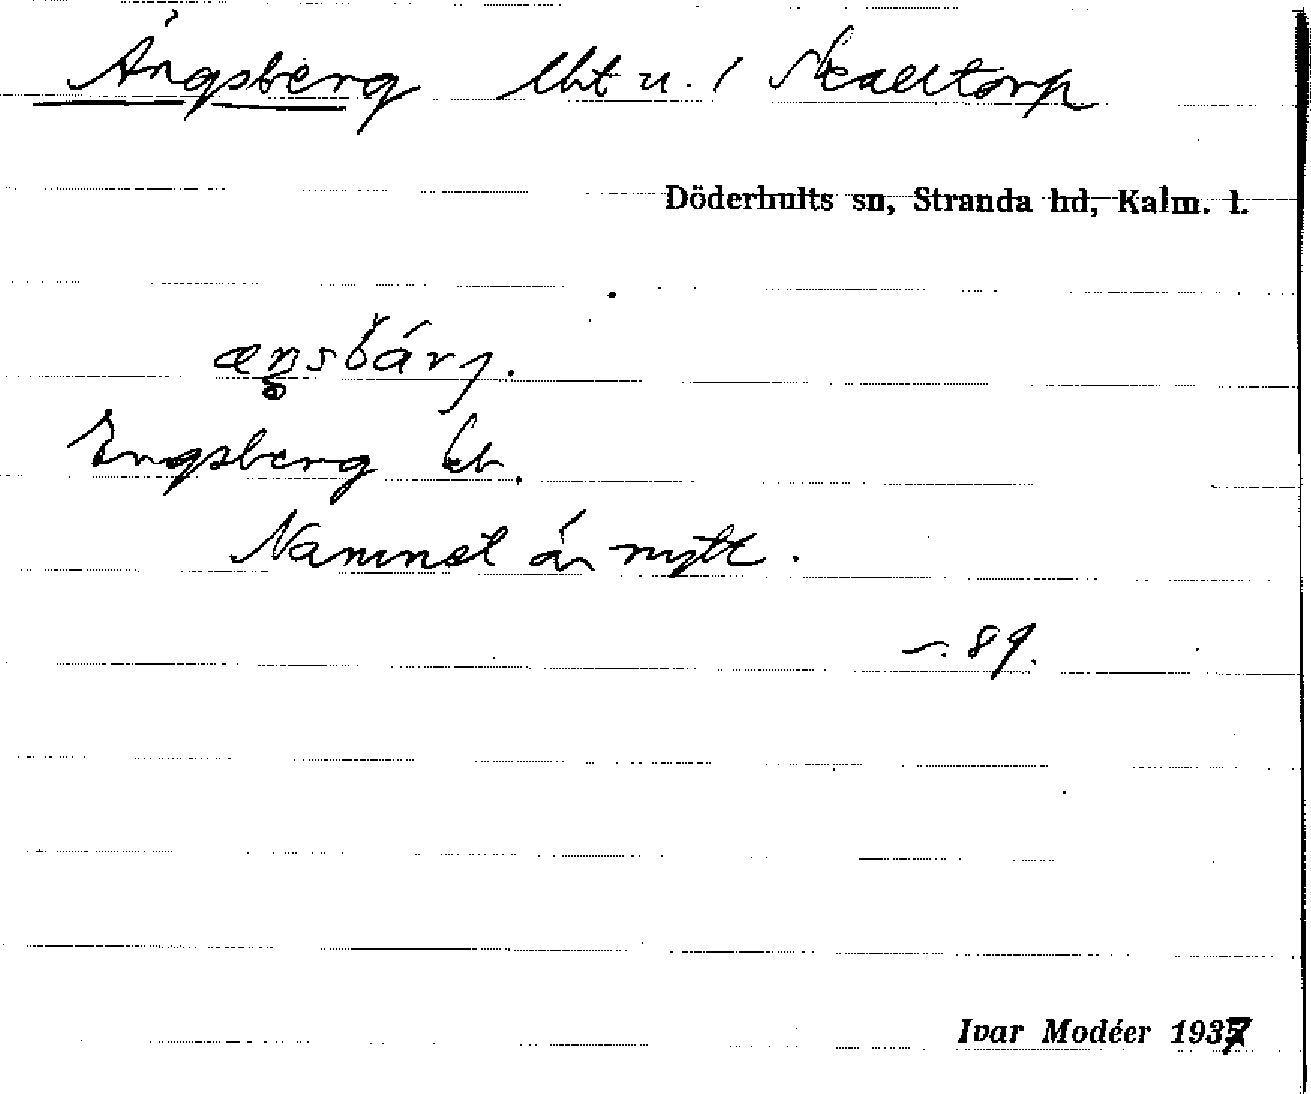 Ängsberg lht u. / Skalltorp
Döderhults sn, Stranda hd, Kalm. l.
æŋsbárj.
Engsberg kb.
Namnet är nytt.
~. 89.
Ivar Modéer 1937